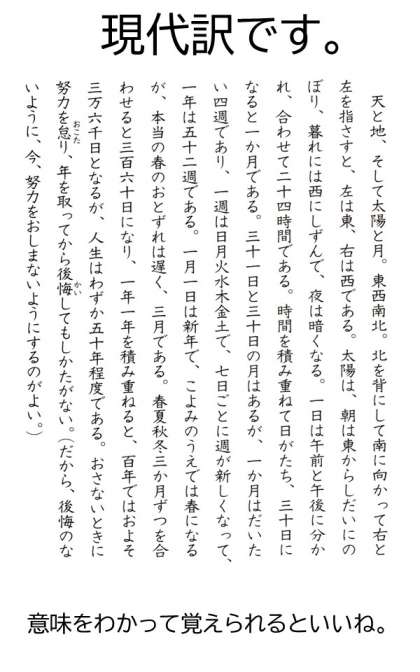 現代訳です。
天と地、そして太陽と月。東西南北。北を背にして南に向かって右と
左を指さすと、左は東、右は西である。太陽は、朝は東からしだいにの
ぼり、暮れには西にしずんで、夜は暗くなる。一日は午前と午後に分か
れ、合わせて二十四時間である。時間を積み重ねて日がたち、三十日に
なると一か月である。三十一日と三十日の月はあるが、一か月はだいた
い四週であり、一週は日月火水木金土で、七日ごとに週が新しくなって、
一年は五十二週である。一月一日は新年で、こよみのうえでは春になる
が、本当の春のおとずれは遅く、三月である。春夏秋冬三か月ずつを合
わせると三百六十日になり、一年一年を積み重ねると、百年ではおよそ
三万六千日となるが、人生はわずか五十年程度である。おさないときに
努力を怠り、年を取ってから後悔してもしかたがない。（だから、後悔のな
いように、今、努力をおしまないようにするのがよい。）
意味をわかって覚えられるといいね。